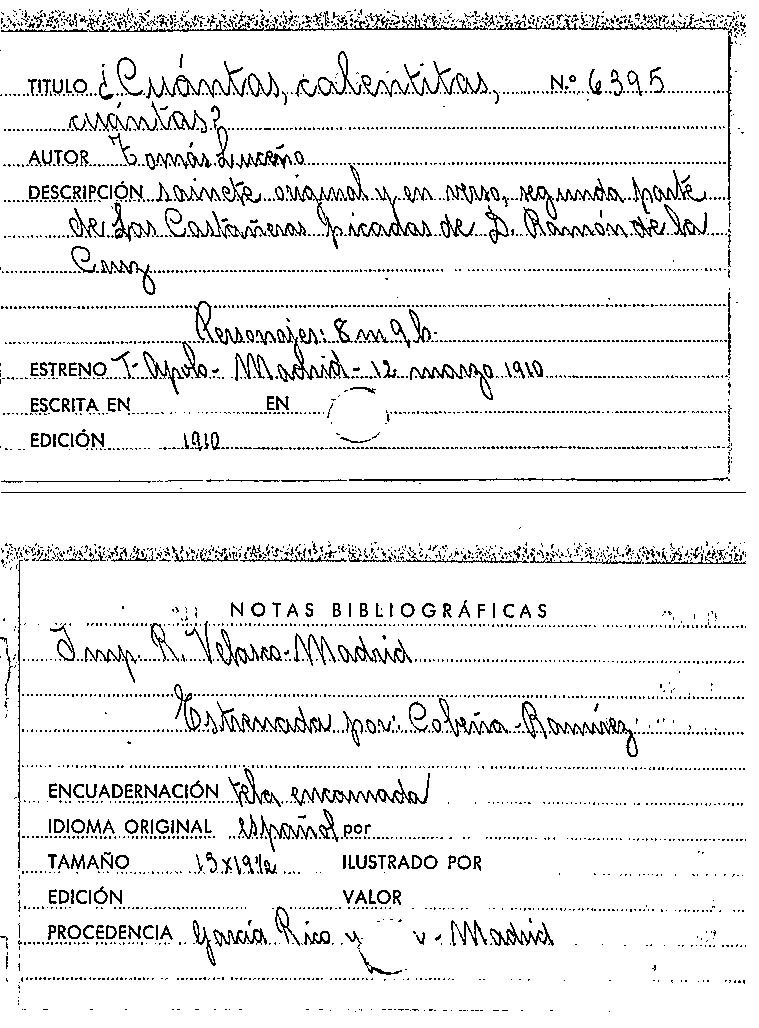 TITULO ¿Cuántas, calentitas, N.º 6395
cuántas?
AUTOR Tomás Luceño
DESCRIPCIÓN sainete original y en verso, segunda parte
de Las Castañeras picadas de D. Ramón de la
Cruz
Personajes: 8 m 9 h.
ESTRENO T- Apolo- Madrid- 12 marzo 1910
ESCRITA EN EN
EDICIÓN 1910
NOTAS BIBLIOGRÁFICAS
Imp. R. Velasco-Madrid
Estrenada por: Cobeña-Ramírez
ENCUADERNACIÓN tela encarnada
IDIOMA ORIGINAL español por
TAMAÑO 13x19½ ILUSTRADO POR
EDICIÓN VALOR
PROCEDENCIA García Rico y - Madrid